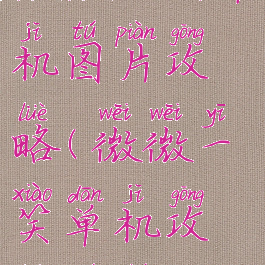 jī tú piàn gōng
机图片攻
lüè wēi wēi yī
略(微微一
xiào dān jī gōng
笑单机攻